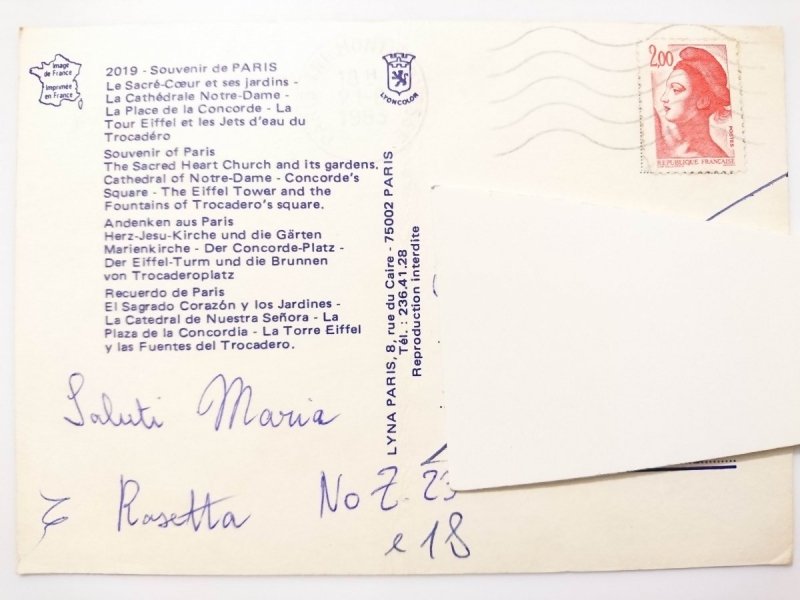 Image
de France
Imprimée
en France
2019 - Souvenir de PARIS
Le Sacré-Cœur et ses jardins -
La Cathédrale Notre-Dame -
La Place de la Concorde - La
Tour Eiffel et les Jets d'eau du
Trocadéro
Souvenir of Paris
The Sacred Heart Church and its gardens.
Cathedral of Notre-Dame - Concorde's
Square - The Eiffel Tower and the
Fountains of Trocadero's square.
Andenken aus Paris
Herz-Jesu-Kirche und die Gärten
Marienkirche - Der Concorde-Platz -
Der Eiffel-Turm und die Brunnen
von Trocaderoplatz
Recuerdo de Paris
El Sagrado Corazón y los Jardines -
La Catedral de Nuestra Señora - La
Plaza de la Concordia - La Torre Eiffel
y las Fuentes del Trocadero.
LYONCOLOR
LYNA PARIS, 8, rue du Caire - 75002 PARIS
Tél. : 236.41.28
Reproduction interdite
2,00
POSTES
REPUBLIQUE FRANÇAISE
Saluti Maria
e Rosetta No Z. 23
e 18